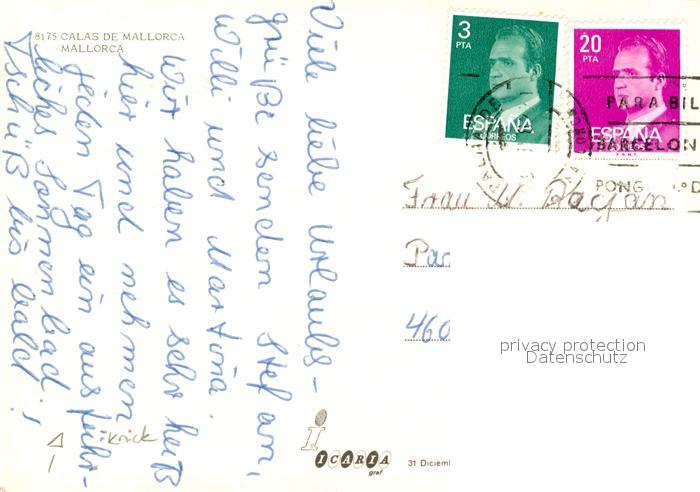 8175 CALAS DE MALLORCA
MALLORCA
Viele liebe Urlaubs-
grüße senden Stefan,
Willi und Martina.
Wir haben es sehr heiß
hier und nehmen
jeden Tag ein ausführ-
liches Sonnenbad.
Tschüß bis bald!
Knick
3
PTA
ESPAÑA
CORREOS
20
PTA
ESPAÑA
CORREOS
F.N.M.T.
PARA BIL
BARCELON
PONG
Frau W.
Pa
460
privacy protection
Datenschutz
i
ICARIA
graf
31 Diciem